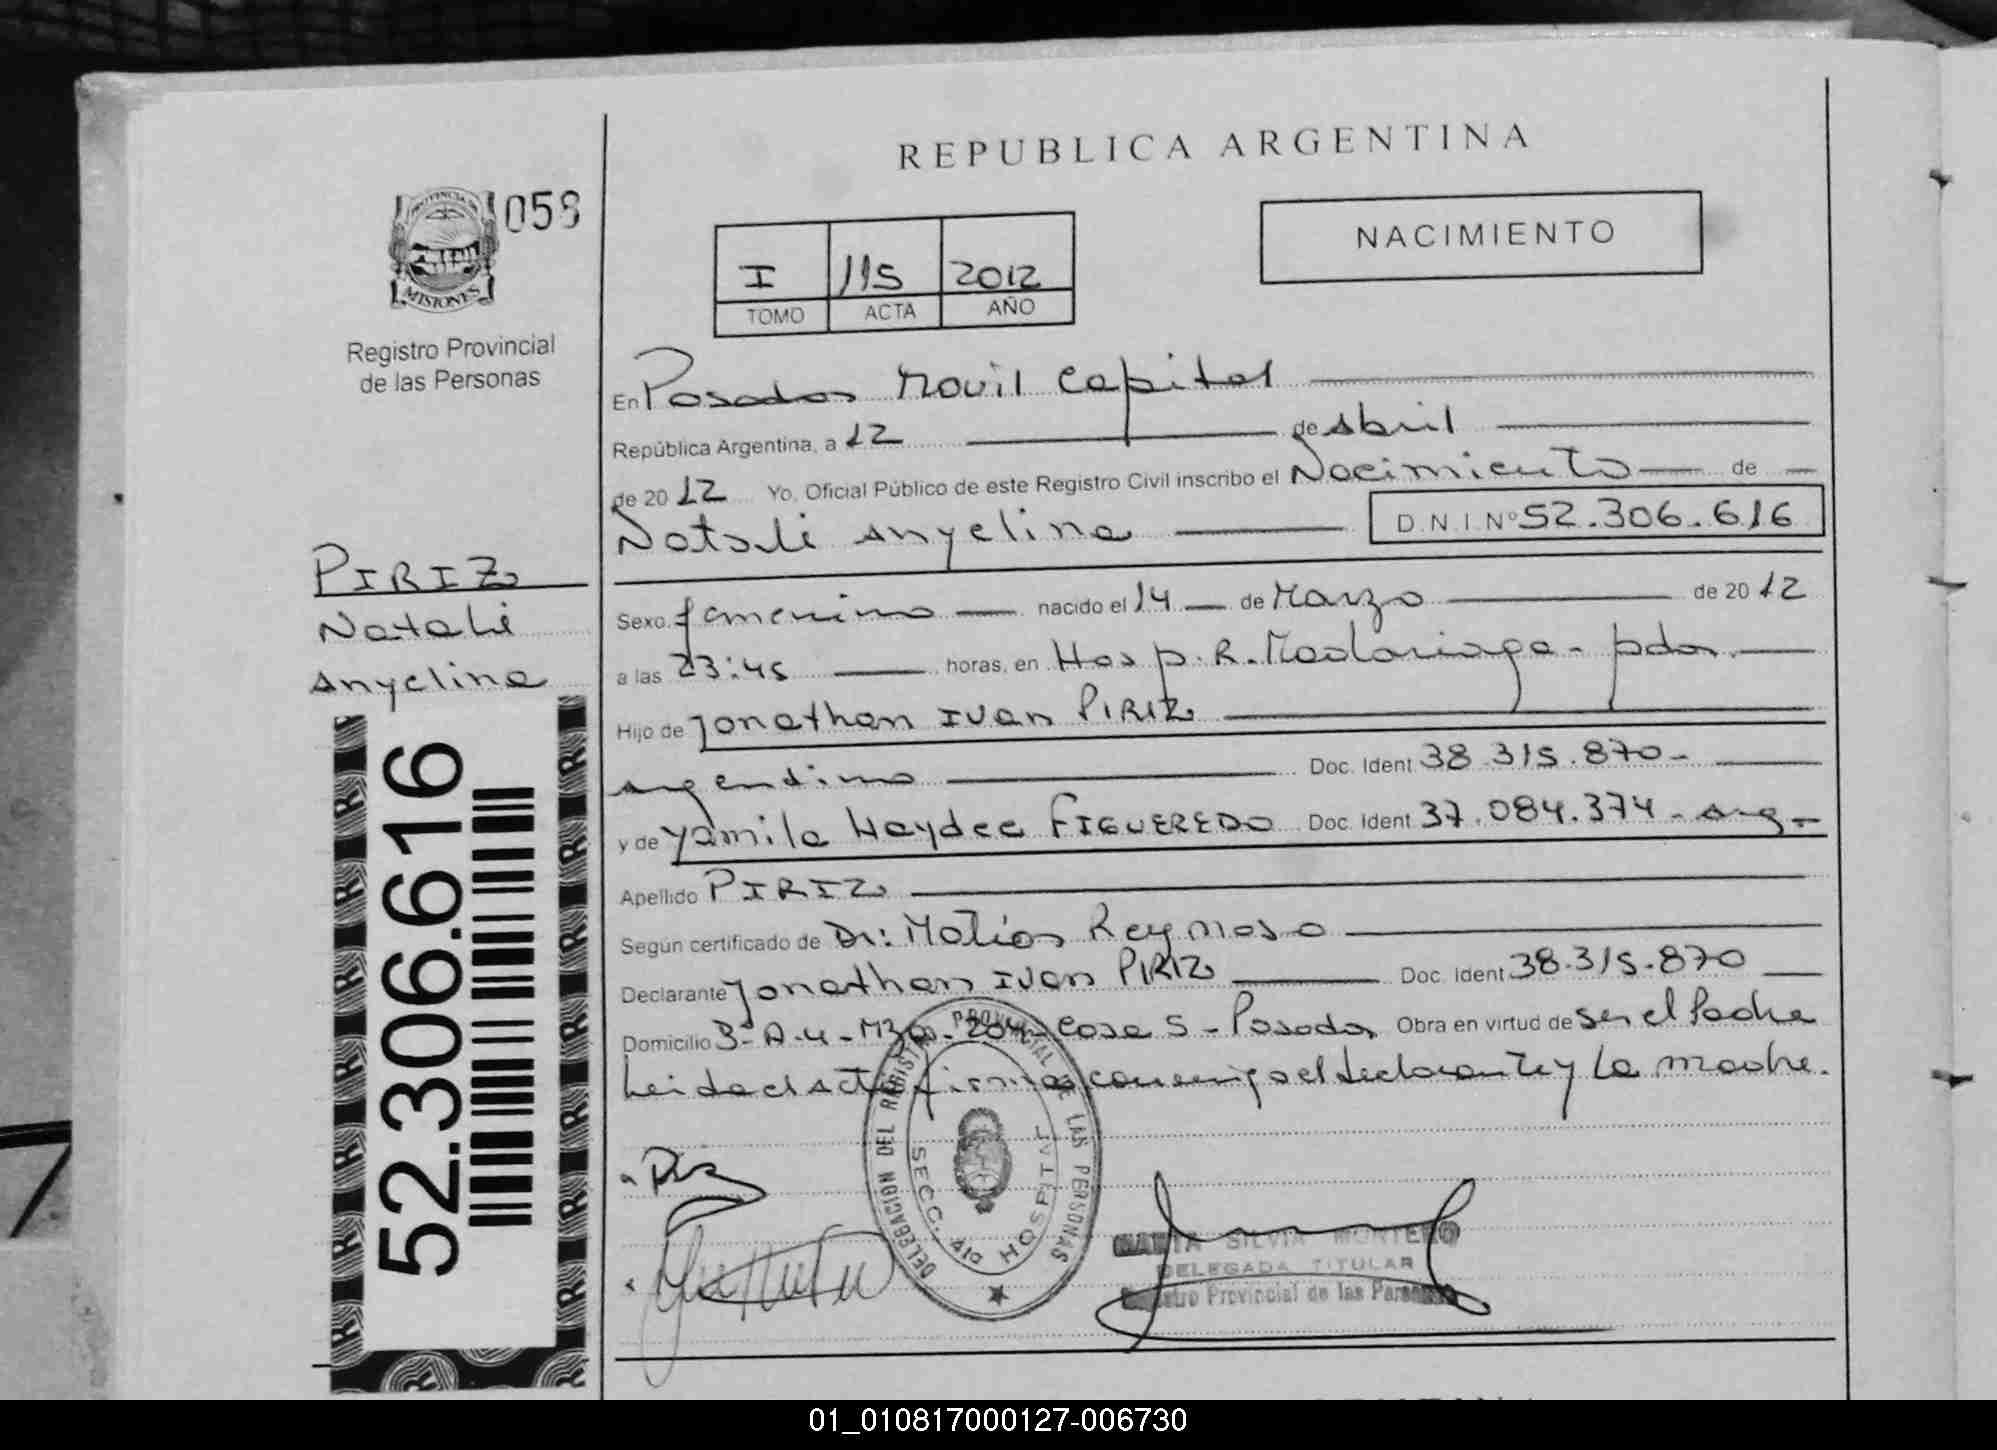 REPUBLICA ARGENTINA
PROVINCIA DE
MISIONES
058
Registro Provincial
de las Personas
NACIMIENTO
I 115 2012
TOMO ACTA AÑO
En Posadas Movil Capital
República Argentina, a 12 de Abril
de 2012 Yo, Oficial Público de este Registro Civil inscribo el Nacimiento de
Natali Anyelina D.N.I. Nº 52.306.616
PIRIZ
Natali
Anyelina
52.306.616
Sexo femenino nacido el 14 de Marzo de 2012
a las 23:45 horas, en Hosp. R. Madariaga - pdas.
Hijo de Jonathan Ivan PIRIZ
argentino Doc. Ident 38.315.870-
y de Yamila Haydee FIGUEREDO Doc. Ident 37.084.374 - arg -
Apellido PIRIZ
Según certificado de Dr: Matias Reynoso
Declarante Jonathan Ivan PIRIZ Doc. Ident 38.315.870
Domicilio Casa 5 - Posadas Obra en virtud de ser el Padre
Leida el acta firman conmigo el declarante y la madre.
DELEGACION DEL REGISTRO PROVINCIAL DE LAS PERSONAS
SECC. 410 HOSPITAL
SILVIA MONTERO
DELEGADA TITULAR
Registro Provincial de las Personas
01_010817000127-006730